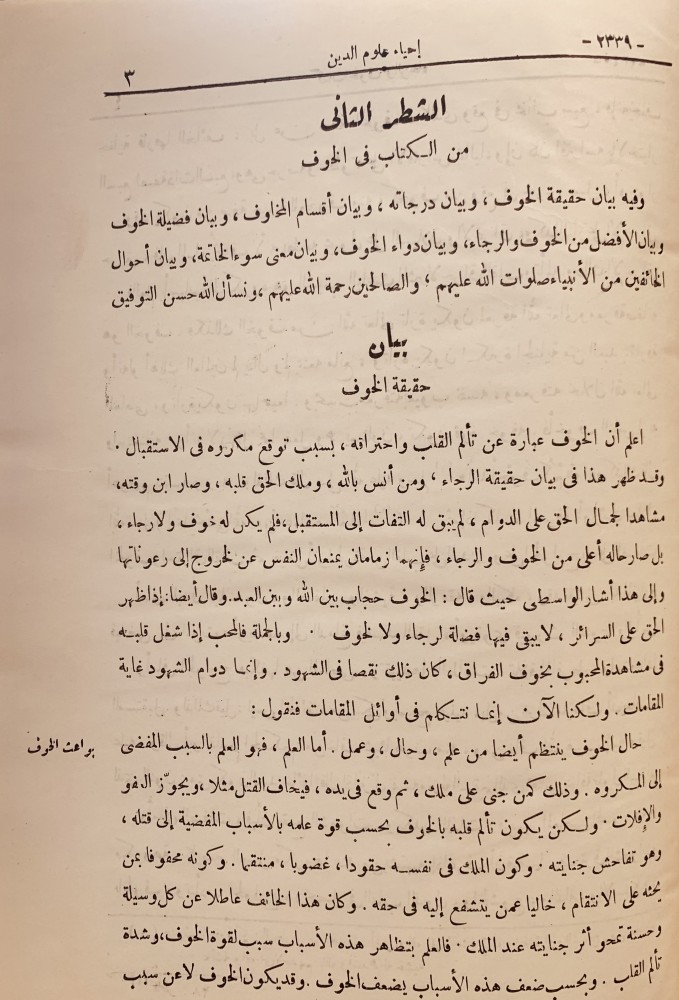 - ٢٣٣٩ -
إحياء علوم الدين
٣
الشطر الثانى
من الكتاب فى الخوف
وفيه بيان حقيقة الخوف ، وبيان درجاته ، وبيان أقسام المخاوف ، وبيان فضيلة الخوف
وبيان الأفضل من الخوف والرجاء، وبيان دواء الخوف، وبيان معنى سوء الخاتمة، وبيان أحوال
الخائفين من الأنبياء صلوات الله عليهم ؛ والصالحين رحمة الله عليهم ، ونسأل الله حسن التوفيق
بيان
حقيقة الخوف
اعلم أن الخوف عبارة عن تألم القلب واحتراقه ، بسبب توقع مكروه فى الاستقبال .
وقد ظهر هذا فى بيان حقيقة الرجاء ؛ ومن أنس بالله ، وملك الحق قلبه ، وصار ابن وقته،
مشاهدا لجمال الحق على الدوام ، لم يبق له التفات إلى المستقبل، فلم يكن له خوف ولا رجاء ،
بل صار حاله أعلى من الخوف والرجاء ، فإنهما زمامان يمنعان النفس عن لخروج إلى رعوناتها
وإلى هذا أشار الواسطى حيث قال : الخوف حجاب بين الله وبين العبد. وقال أيضا: إذا ظهر
الحق على السرائر ، لا يبقى فيها فضلة لرجاء ولا لخوف . وبالجملة فالمحب إذا شغل قلبه
فى مشاهدة المحبوب بخوف الفراق ، كان ذلك نقصا فى الشهود . وإنما دوام الشهود غاية
المقامات . ولكنا الآن إنما نتكلم فى أوائل المقامات فنقول :
حال الخوف ينتظم أيضا من علم ، وحال ، وعمل . أما العلم ، فهو العلم بالسبب المفضى
بواعث الخوف
إلى المكروه . وذلك كمن جنى على ملك ، ثم وقع فى يده ، فيخاف القتل مثلا ، ويجوّز العفو
والإفلات . ولكن يكون تألم قلبه بالخوف بحسب قوة علمه بالأسباب المفضية إلى قتله ،
وهو تفاحش جنايته . وكون الملك فى نفسه حقودا ، غضوبا ، منتقما . وكونه محفوفا بمن
يحثه على الانتقام ، خاليا عمن يتشفع إليه فى حقه . وكان هذا الخائف عاطلا عن كل وسيلة
وحسنة تمحو أثر جنايته عند الملك . فالعلم بتظاهر هذه الأسباب سبب لقوة الخوف، وشدة
تألم القلب . وبحسب ضعف هذه الأسباب يضعف الخوف . وقد يكون الخوف لا عن سبب